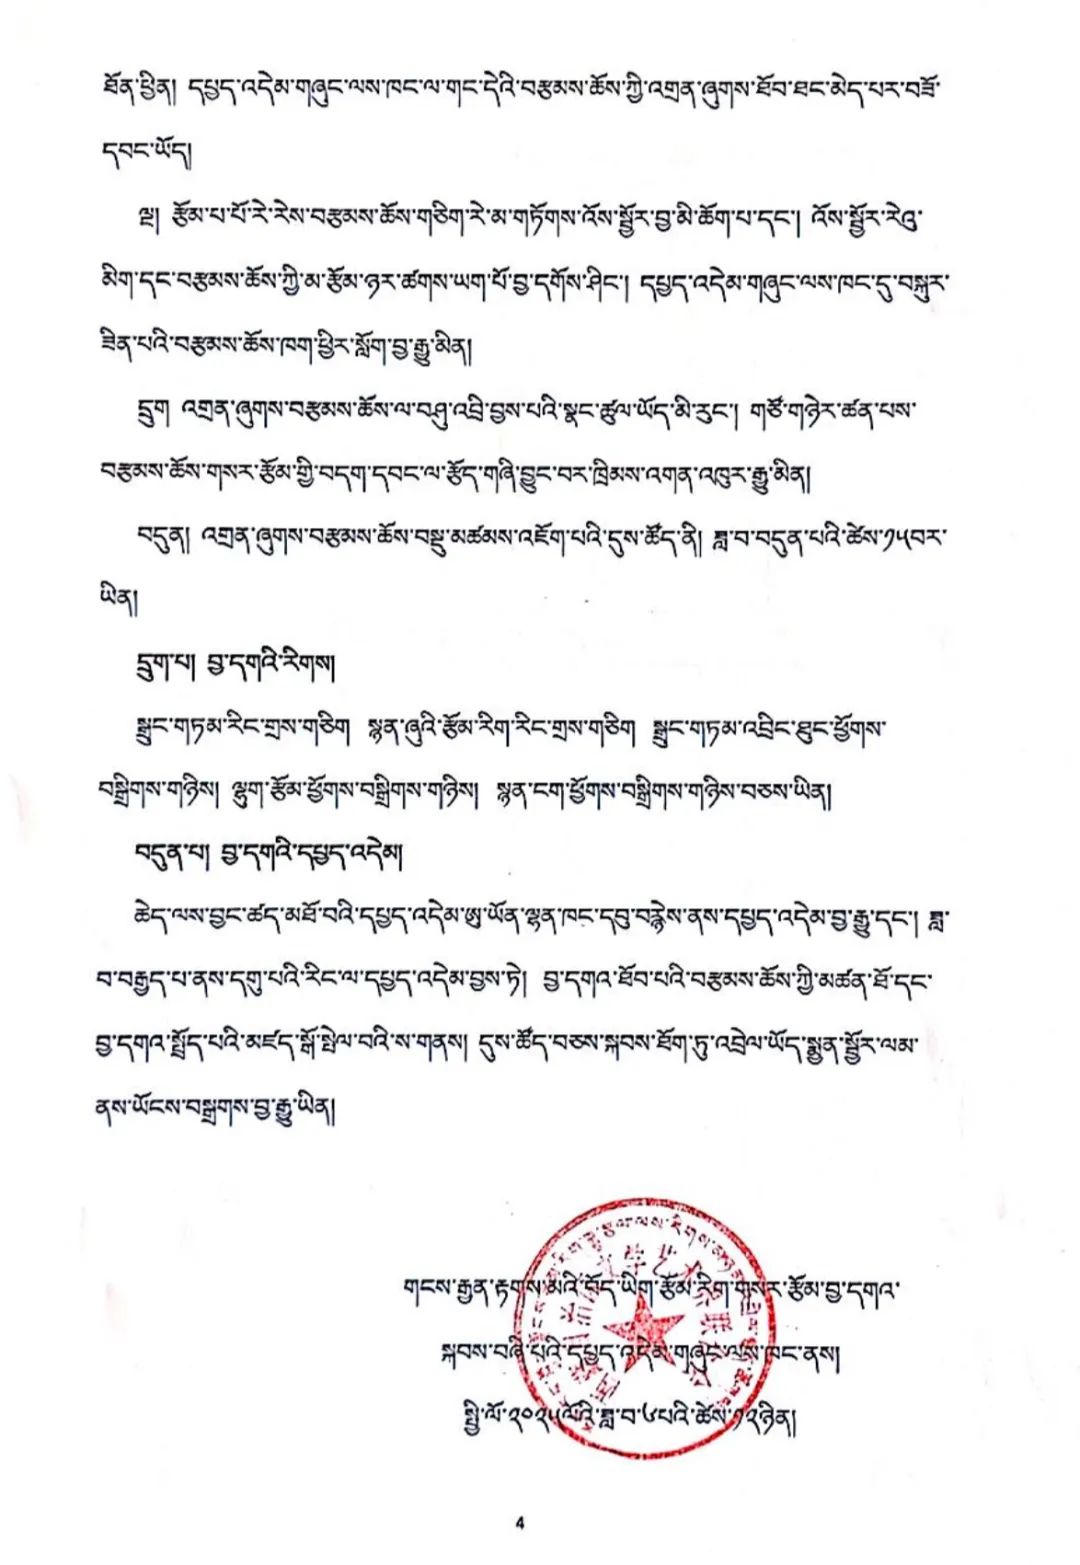 ཐོན་ཕྱིན། དཔྱད་འདེམ་གཞུང་ལས་ཁང་ལ་གང་དེའི་བརྩམས་ཆོས་ཀྱི་འགྲན་ཞུགས་ཐོབ་ཐང་མེད་པར་བཟོ་
དབང་ཡོད།
ལྔ། རྩོམ་པ་པོ་རེ་རེས་བརྩམས་ཆོས་གཅིག་རེ་མ་གཏོགས་འོས་སྦྱོར་བྱ་མི་ཆོག་པ་དང་། འོས་སྦྱོར་རེའུ་
མིག་དང་བརྩམས་ཆོས་ཀྱི་མ་རྩོམ་ཉར་ཚགས་ཡག་པོ་བྱ་དགོས་ཤིང་། དཔྱད་འདེམ་གཞུང་ལས་ཁང་དུ་བསྐུར་
ཟིན་པའི་བརྩམས་ཆོས་ཁག་ཕྱིར་སློག་བྱ་རྒྱུ་མིན།
དྲུག འགྲན་ཞུགས་བརྩམས་ཆོས་ལ་བཤུ་འབྲི་བྱས་པའི་སྣང་ཚུལ་ཡོད་མི་རུང་། གཙོ་གཉེར་ཚན་པས་
བརྩམས་ཆོས་གསར་རྩོམ་གྱི་བདག་དབང་ལ་རྩོད་གཞི་བྱུང་བར་ཁྲིམས་འགན་འཁུར་རྒྱུ་མིན།
བདུན། འགྲན་ཞུགས་བརྩམས་ཆོས་བསྡུ་མཚམས་འཇོག་པའི་དུས་ཚོད་ནི། ཟླ་བ་བདུན་པའི་ཚེས་༡༥བར་
ཡིན།
དྲུག་པ། བྱ་དགའི་རིགས།
སྒྲུང་གཏམ་རིང་གྲས་གཅིག སྙན་ཞུའི་རྩོམ་རིག་རིང་གྲས་གཅིག སྒྲུང་གཏམ་འབྲིང་ཐུང་ཕྱོགས་
བསྒྲིགས་གཉིས། ལྷུག་རྩོམ་ཕྱོགས་བསྒྲིགས་གཉིས། སྙན་ངག་ཕྱོགས་བསྒྲིགས་གཉིས་བཅས་ཡིན།
བདུན་པ། བྱ་དགའི་དཔྱད་འདེམ།
ཆེད་ལས་བྱང་ཚད་མཐོ་བའི་དཔྱད་འདེམ་ཨུ་ཡོན་ལྷན་ཁང་དབུ་བརྙེས་ནས་དཔྱད་འདེམ་བྱ་རྒྱུ་དང་། ཟླ་
བ་བརྒྱད་པ་ནས་དགུ་པའི་རིང་ལ་དཔྱད་འདེམ་བྱས་ཏེ། བྱ་དགའ་ཐོབ་པའི་བརྩམས་ཆོས་ཀྱི་མཚན་ཐོ་དང་
བྱ་དགའ་སྤྲོད་པའི་མཛད་སྒོ་སྤེལ་བའི་ས་གནས། དུས་ཚོད་བཅས་སྐབས་ཐོག་ཏུ་འབྲེལ་ཡོད་སྨྱན་སྦྱོར་ལམ་
ནས་ཡོངས་བསྒྲགས་བྱ་རྒྱུ་ཡིན།
གངས་རྒྱན་རྟགས་མའི་བོད་ཡིག་རྩོམ་རིག་གསར་རྩོམ་བྱ་དགའ་
སྐབས་བཞི་པའི་དཔྱད་འདེམ་གཞུང་ལས་ཁང་ནས།
སྤྱི་ལོ་༢༠༢༥ལོའི་ཟླ་བ་༦པའི་ཚེས་༡༢ཉིན།
4